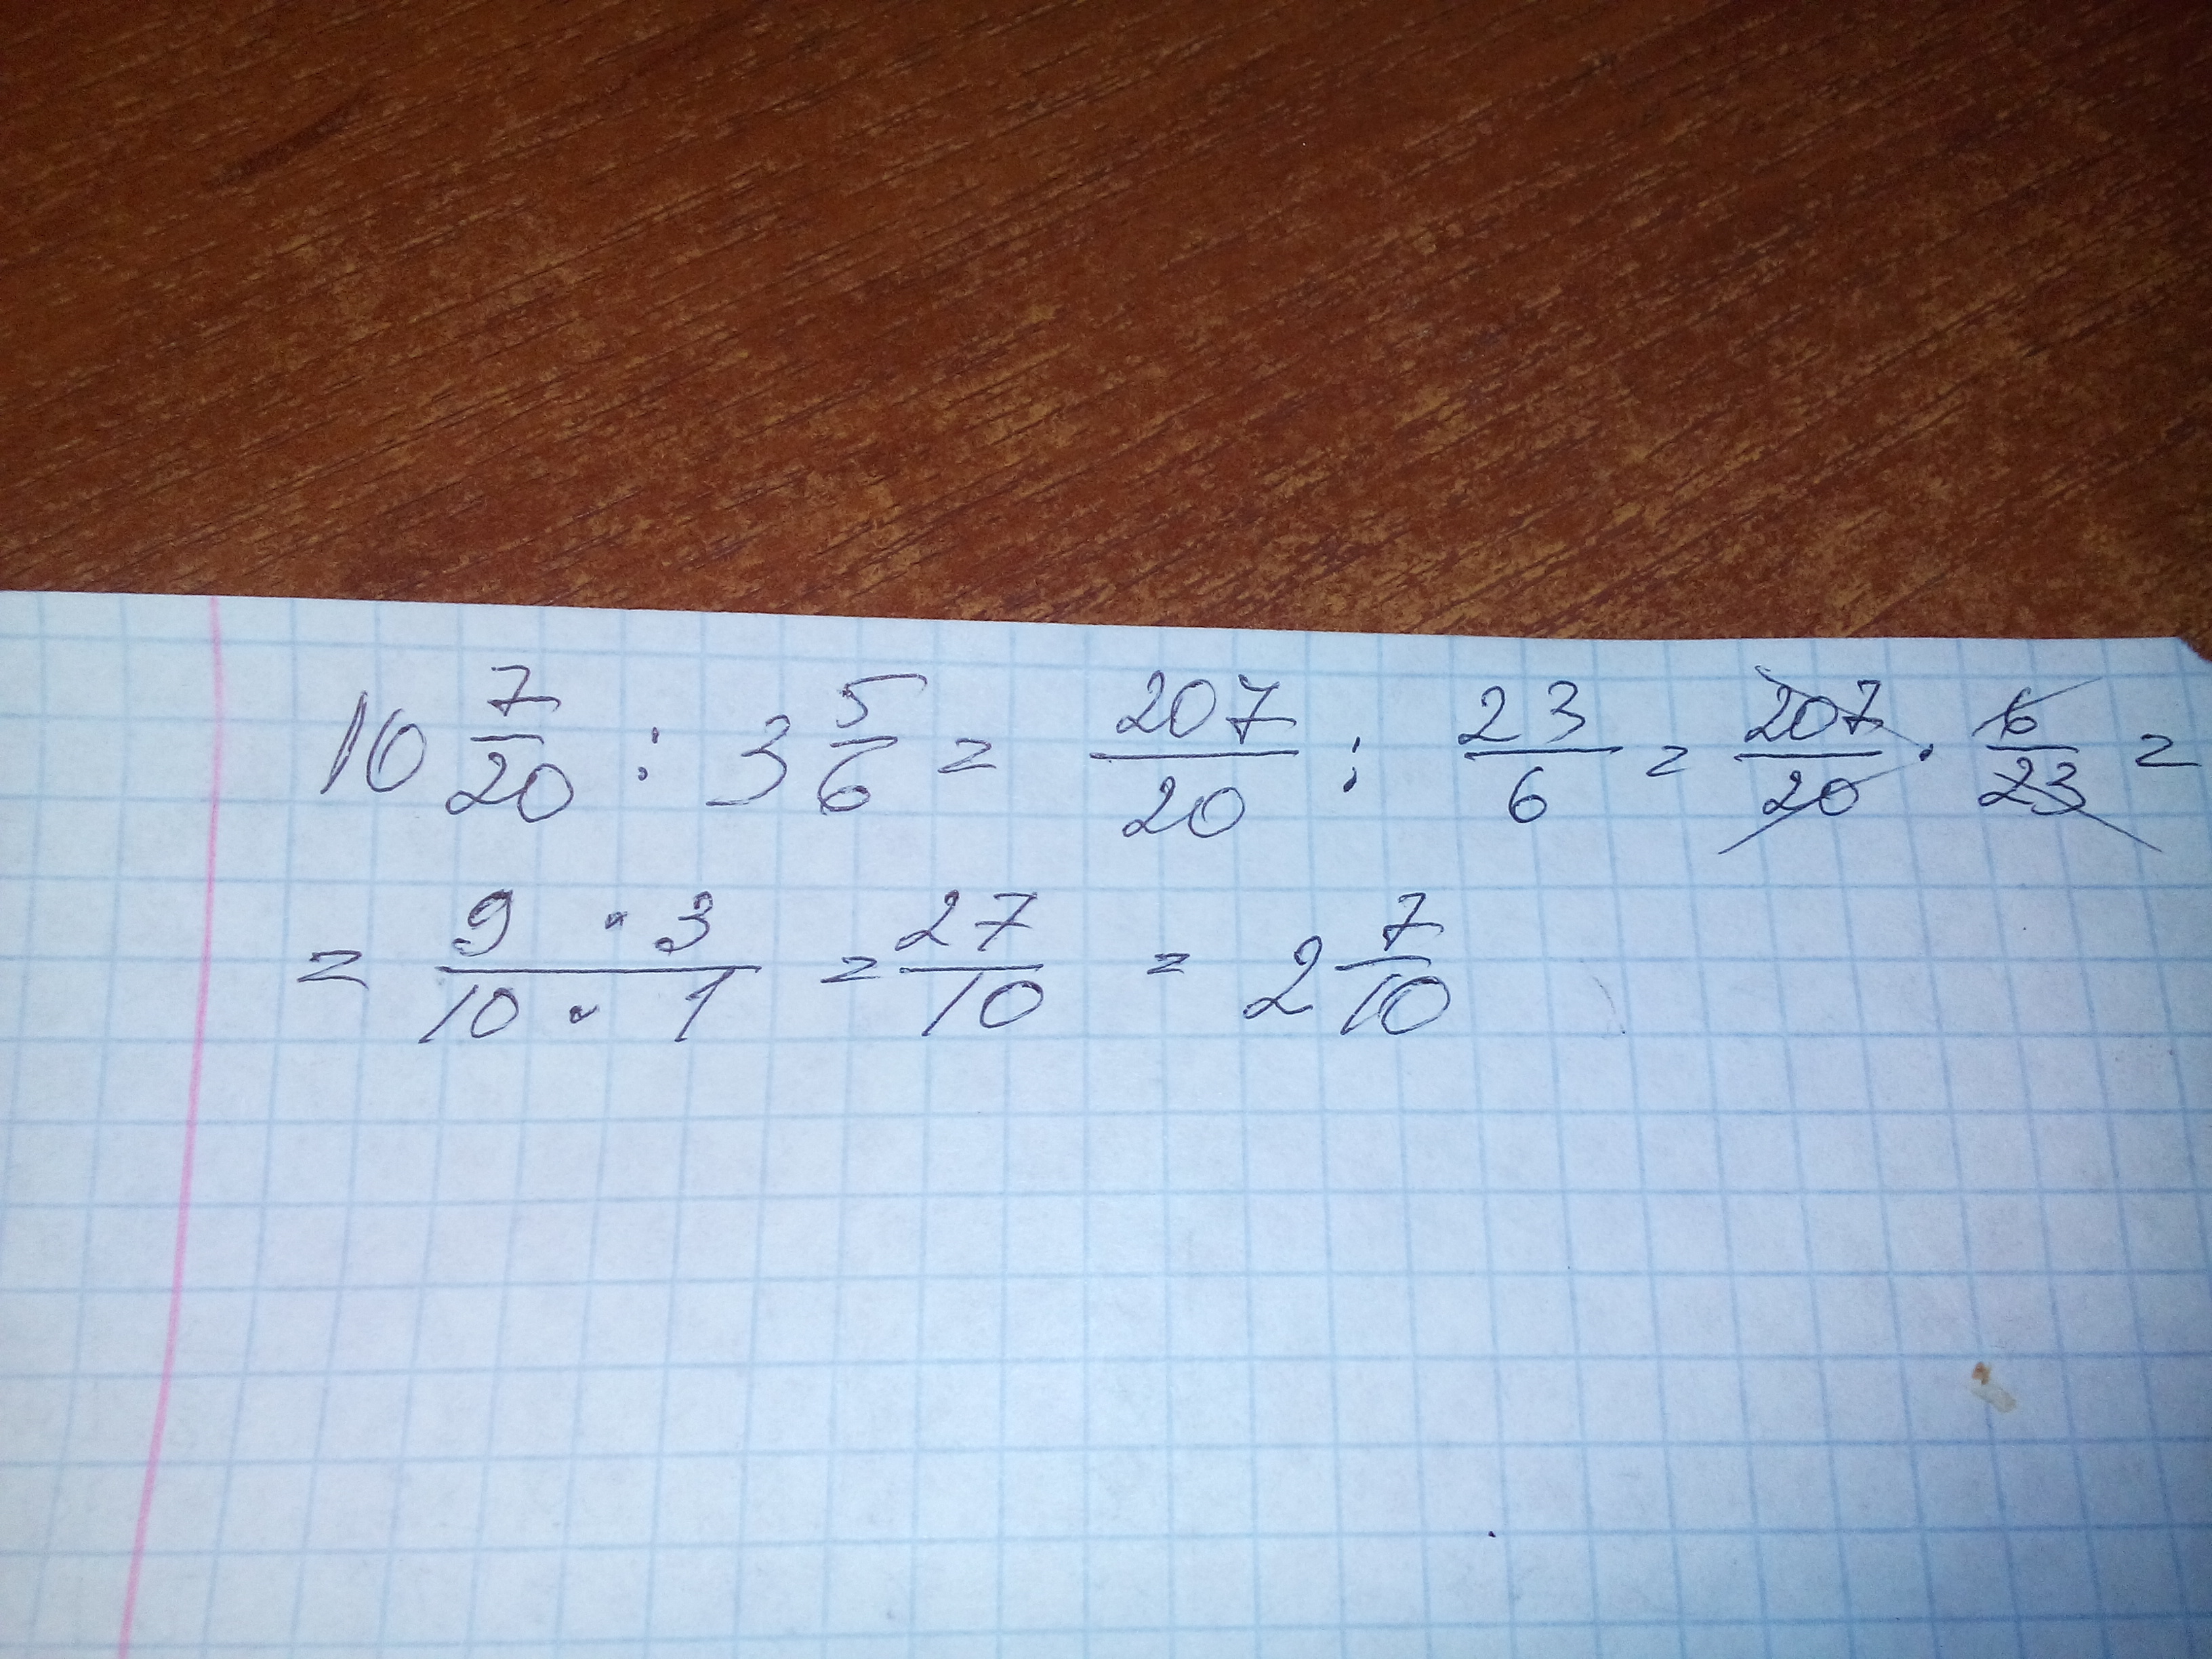 10 7/20 : 3 5/6 = 207/20 : 23/6 = 207/20 · 6/23 =
= 9 · 3/10 · 1 = 27/10 = 2 7/10